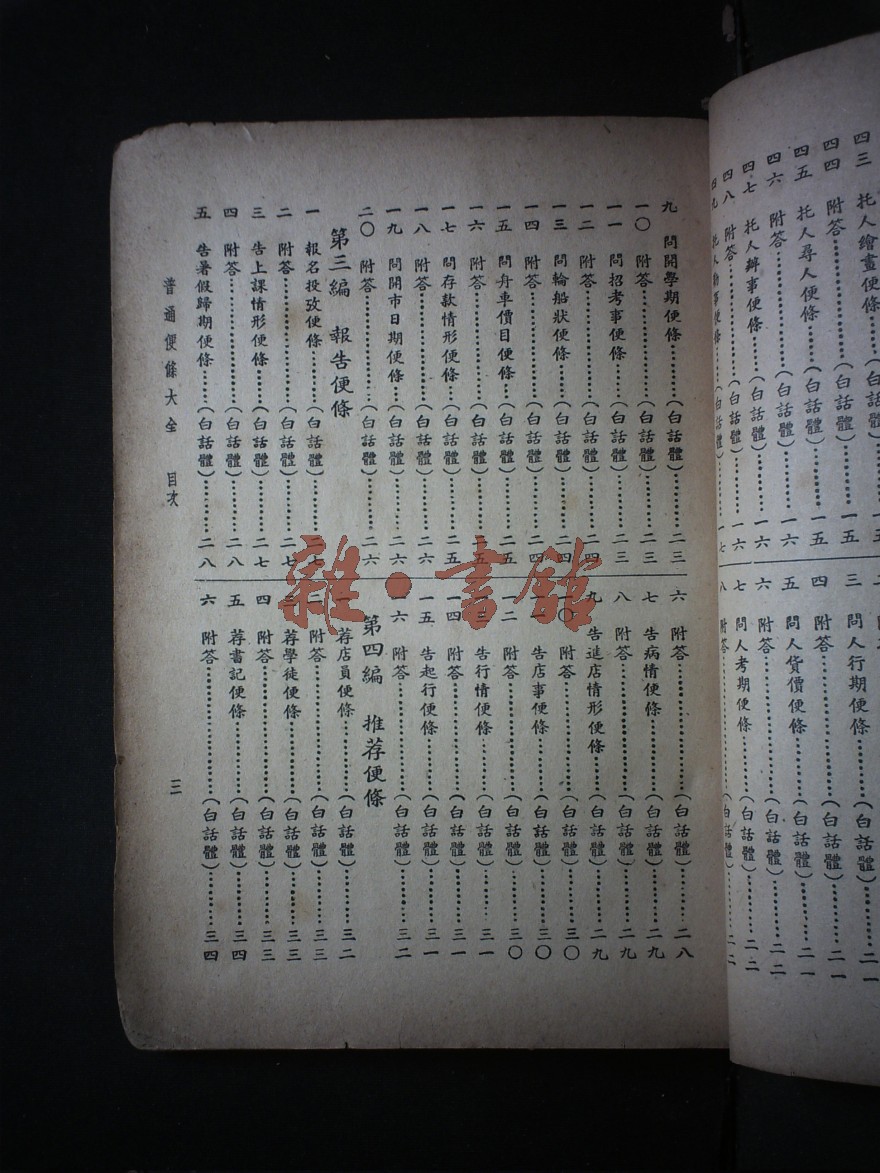 四三 托人繪畫便條……一五
四四 附答……一五
四五 托人尋人便條……(白話體)……一五
四六 附答……(白話體)……一六
四七 托人辦事便條……(白話體)……一六
四八 附答……(白話體)……一六
四九 托人 事便條……(白話體)……一七
三 問人行期便條……(白話體)……二一
四 附答……(白話體)……二一
五 問人貨價便條……(白話體)……二一
六 附答……(白話體)……二二
七 問人考期便條……(白話體)……二二
八 附答……(白話體)……二二
九 問開學期便條……(白話體)……二三
一〇 附答……(白話體)……二三
一一 問招考事便條……(白話體)……二三
一二 附答……(白話體)……二四
一三 問輪船狀便條……(白話體)……二四
一四 附答……(白話體)……二四
一五 問舟車價目便條……(白話體)……二五
一六 附答……(白話體)……二五
一七 問存款情形便條……(白話體)……二五
一八 附答……(白話體)……二六
一九 問開市日期便條……(白話體)……二六
二〇 附答……(白話體)……二六
第三編 報告便條
一 報名投攷便條……(白話體)……二七
二 附答……(白話體)……二七
三 告上課情形便條……(白話體)……二七
四 附答……(白話體)……二八
五 告暑假歸期便條……(白話體)……二八
六 附答……(白話體)……二八
七 告病情便條……(白話體)……二九
八 附答……(白話體)……二九
九 告進店情形便條……(白話體)……二九
一〇 附答……(白話體)……三〇
一一 告店事便條……(白話體)……三〇
一二 附答……(白話體)……三〇
一三 告行情便條……(白話體)……三一
一四 附答……(白話體)……三一
一五 告起行便條……(白話體)……三一
一六 附答……(白話體)……三二
第四編 推荐便條
一 荐店員便條……(白話體)……三二
二 附答……(白話體)……三三
三 荐學徒便條……(白話體)……三三
四 附答……(白話體)……三三
五 荐書記便條……(白話體)……三四
六 附答……(白話體)……三四
普通便條大全 目次
三
雜·書館